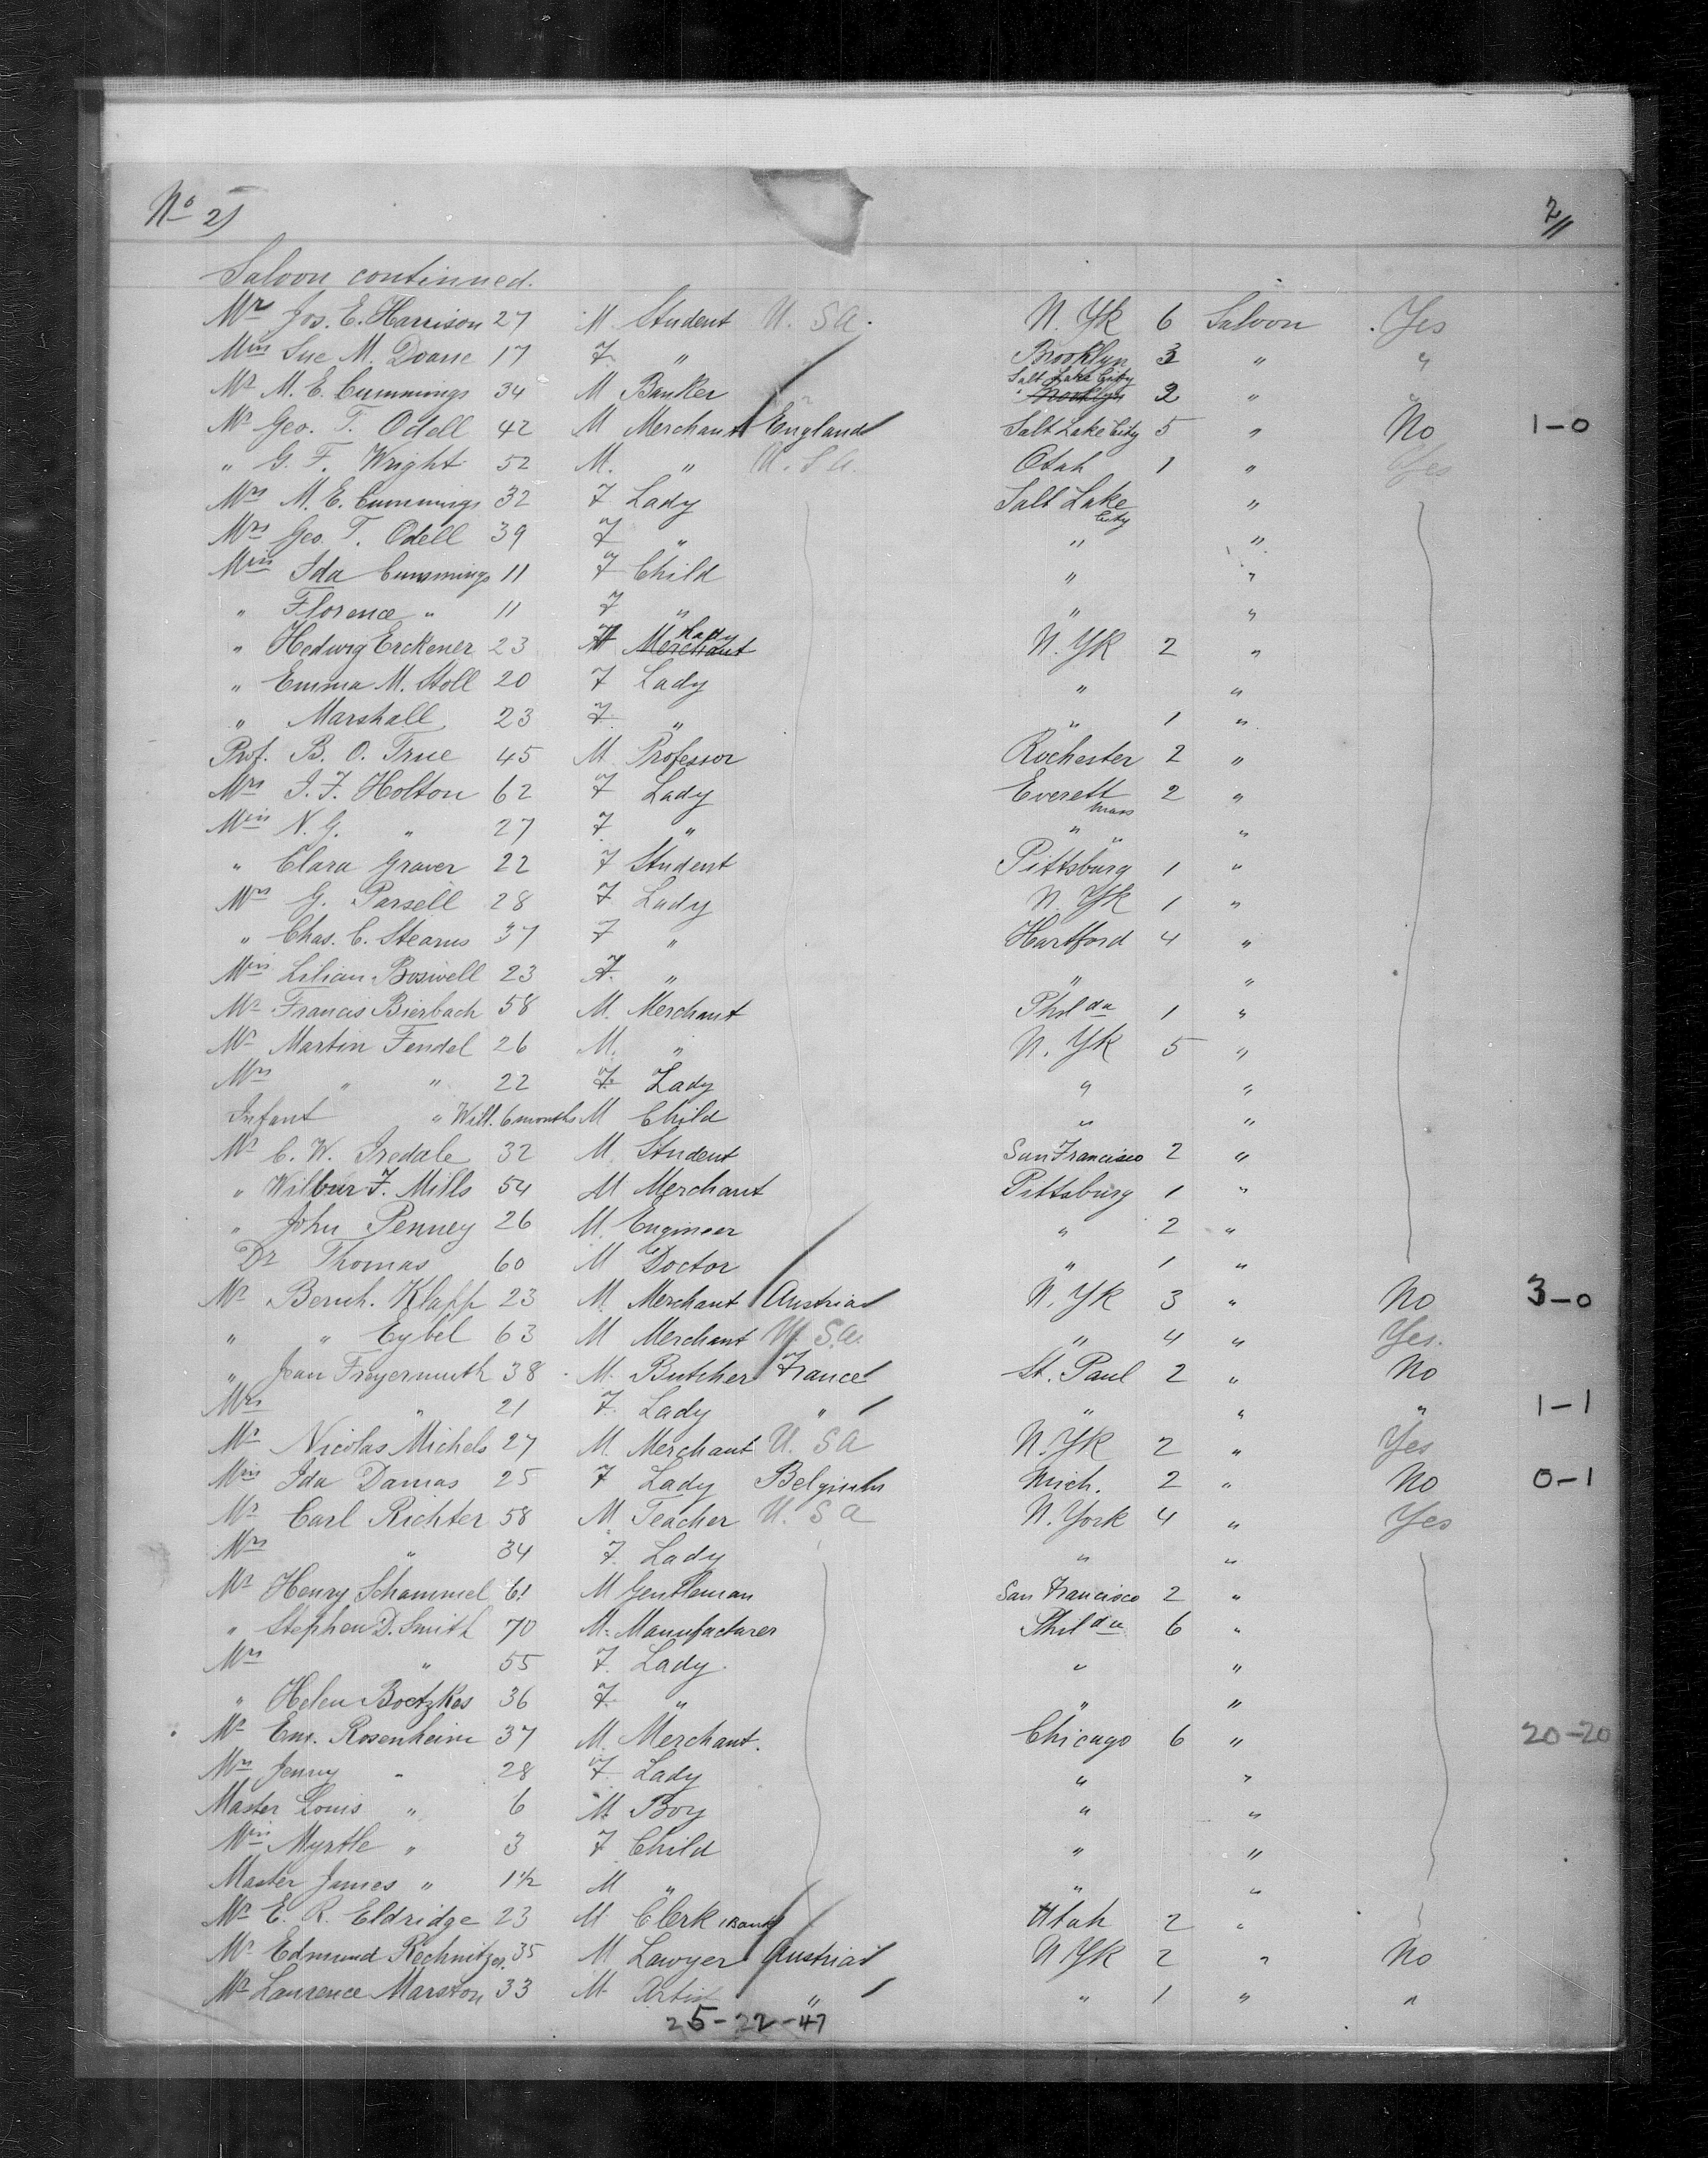 No 2)
2/11
Saloon continued.
Mr Jos. E. Harrison 27 M Student U. S A. N. Yk 6 Saloon Yes
Miss Sue M. Doane 17 F " Brooklyn 3 " "
Mr M. E. Cummings 34 M Banker Salt Lake City 2 " "
Mr Geo. T. Odell 42 M Merchant England Salt Lake City 5 " No 1-0
" G. F. Wright 52 M. " U. S A. Otah 1 " Yes
Mrs M. E. Cummings 32 F Lady Salt Lake City "
Mrs Geo. T. Odell 39 F " " "
Miss Ida Cummings 11 F Child " "
" Florence " 11 F " " "
" Hedwig Erckener 23 F Merchant Lady N. Yk 2 "
" Emma M. Stoll 20 F Lady " "
" Marshall 23 F " " 1 "
Prof. B. O. True 45 M Professor Rochester 2 "
Mrs I. F. Holton 62 F Lady Everett Mass 2 "
Miss N. G. " 27 F " " " "
" Clara Graver 22 F Student Pittsburg 1 "
Mrs G. Parsell 28 F Lady N. Yk 1 "
" Chas. C. Stearns 37 F " Hartford 4 "
Miss Lilian Boswell 23 F. " " "
Mr Francis Bierbach 58 M. Merchant Philda 1 "
Mr Martin Fendel 26 M. " N. Yk 5 "
Mrs " " 22 F. Lady " "
Infant " Will. 6 months M Child " "
Mr C. W. Iredale 32 M Student San Francisco 2 "
" Wilbur F. Mills 54 M Merchant Pittsburg 1 "
" John Penney 26 M. Engineer " 2 "
Dr Thomas 60 M Doctor " 1 "
Mr Bernh. Klapp 23 M. Merchant Austria N. Yk 3 " No 3-0
" " Eybel 63 M Merchant U. S.A. " 4 " Yes.
" Jean Freyermuth 38 M. Butcher France St. Paul 2 " No
Mrs " 21 F. Lady " " " " 1-1
Mr Nicolas Michels 27 M. Merchant U. S A N. Yk 2 " Yes
Miss Ida Damas 25 F Lady Belgium Mich. 2 " No 0-1
Mr Carl Richter 58 M Teacher U. S A N. York 4 " Yes
Mrs " 34 F. Lady " "
Mr Henry Schammel 61 M Gentleman San Francisco 2 "
" Stephen D. Smith 70 M. Manufacturer Philda 6 "
Mrs " 55 F. Lady. " "
" Helen Boetzkes 36 F. " " "
Mr Em. Rosenheim 37 M. Merchant. Chicago 6 " 20-20
Mrs Jenny " 28 F. Lady " "
Master Louis " 6 M. Boy " "
Miss Myrtle " 3 F Child " "
Master James " 1½ M " " "
Mr E. R. Eldridge 23 M. Clerk (Bank) Utah 2 "
Mr Edmund Rechnitzer. 35 M. Lawyer Austria N Yk 2 " No
Mr Laurence Marston 33 M. Artist " " 1 " "
25-22-47